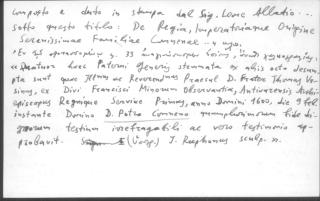 composto e dato in stampa dal Sig. Leone Allatio ...
sotto questo titolo: De Regia, Imperatoriaque Origine
Serenissimae Familiae Comnenae
33
haec Paterni Generis stemmata ex aliis octo desum,
pta sunt quae Illmus ac Reverendmus Praesul D. Frater Thomas Ur-
sinus, ex Divi Francisci Minorum Observantia, Antivarensis Archi-
episcopus Regnique Serviae Primas, anno Domini 1600, die 9 feb.
instante Domino D. Petro Comneno quamplurimorum fide di-
gnorum testium irrefragabili ac vero testimonio ap-
probavit. J. sculp.